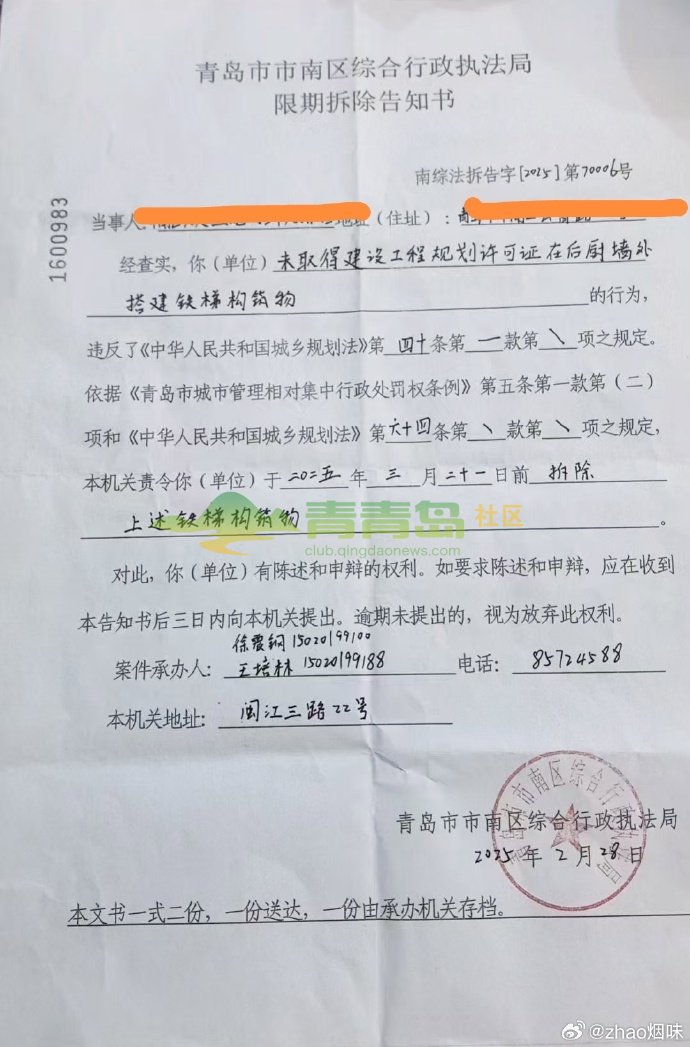 青岛市市南区综合行政执法局
限期拆除告知书
南综法拆告字[2025]第70006号
1600983
当事人: 地址(住址):
经查实,你(单位)未取得建设工程规划许可证在后厨墙外
搭建铁梯构筑物的行为,
违反了《中华人民共和国城乡规划法》第四十条第一款第\项之规定。
依据《青岛市城市管理相对集中行政处罚权条例》第五条第一款第(二)
项和《中华人民共和国城乡规划法》第六十四条第\款第\项之规定,
本机关责令你(单位)于二〇二五年三月二十一日前拆除
上述铁梯构筑物。
青青岛社区
club.qingdaonews.com
对此,你(单位)有陈述和申辩的权利。如要求陈述和申辩,应在收到
本告知书后三日内向本机关提出。逾期未提出的,视为放弃此权利。
徐震钢15020199100
案件承办人:王培林15020199188 电话:85724588
本机关地址:闽江三路22号
青岛市市南区综合行政执法局
青岛市市南区综合行政执法局
2025年2月28日
本文书一式二份,一份送达,一份由承办机关存档。
@zhao烟味